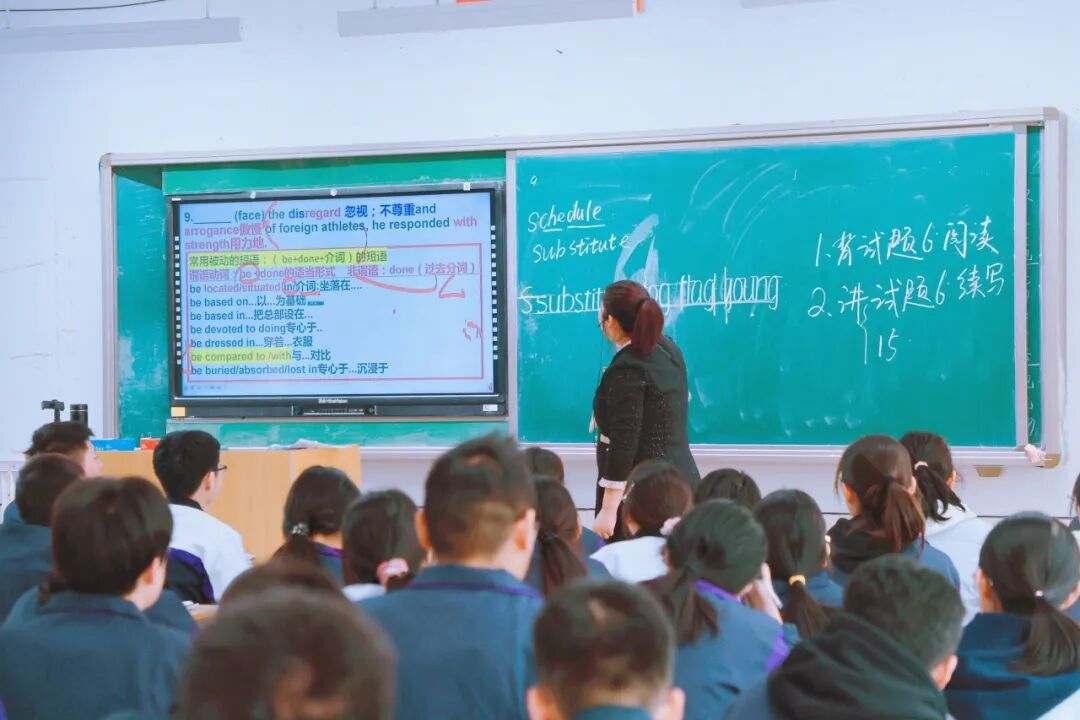 9.______ (face) the disregard 忽视；不尊重and
arrogance傲慢 of foreign athletes, he responded with
strength用力地.
常用被动的短语：（ be+done+介词）的短语
谓语动词：be +done的适当形式 非谓语：done（过去分词）
be located/situated in/介词:坐落在....
be based on...以...为基础
be based in...把总部设在...
be devoted to doing专心于..
be dressed in...穿着...衣服
be compared to /with与...对比
be buried/absorbed/lost in专心于...沉浸于
schedule
substitute
1.背试题6阅读
2.讲试题6续写
15